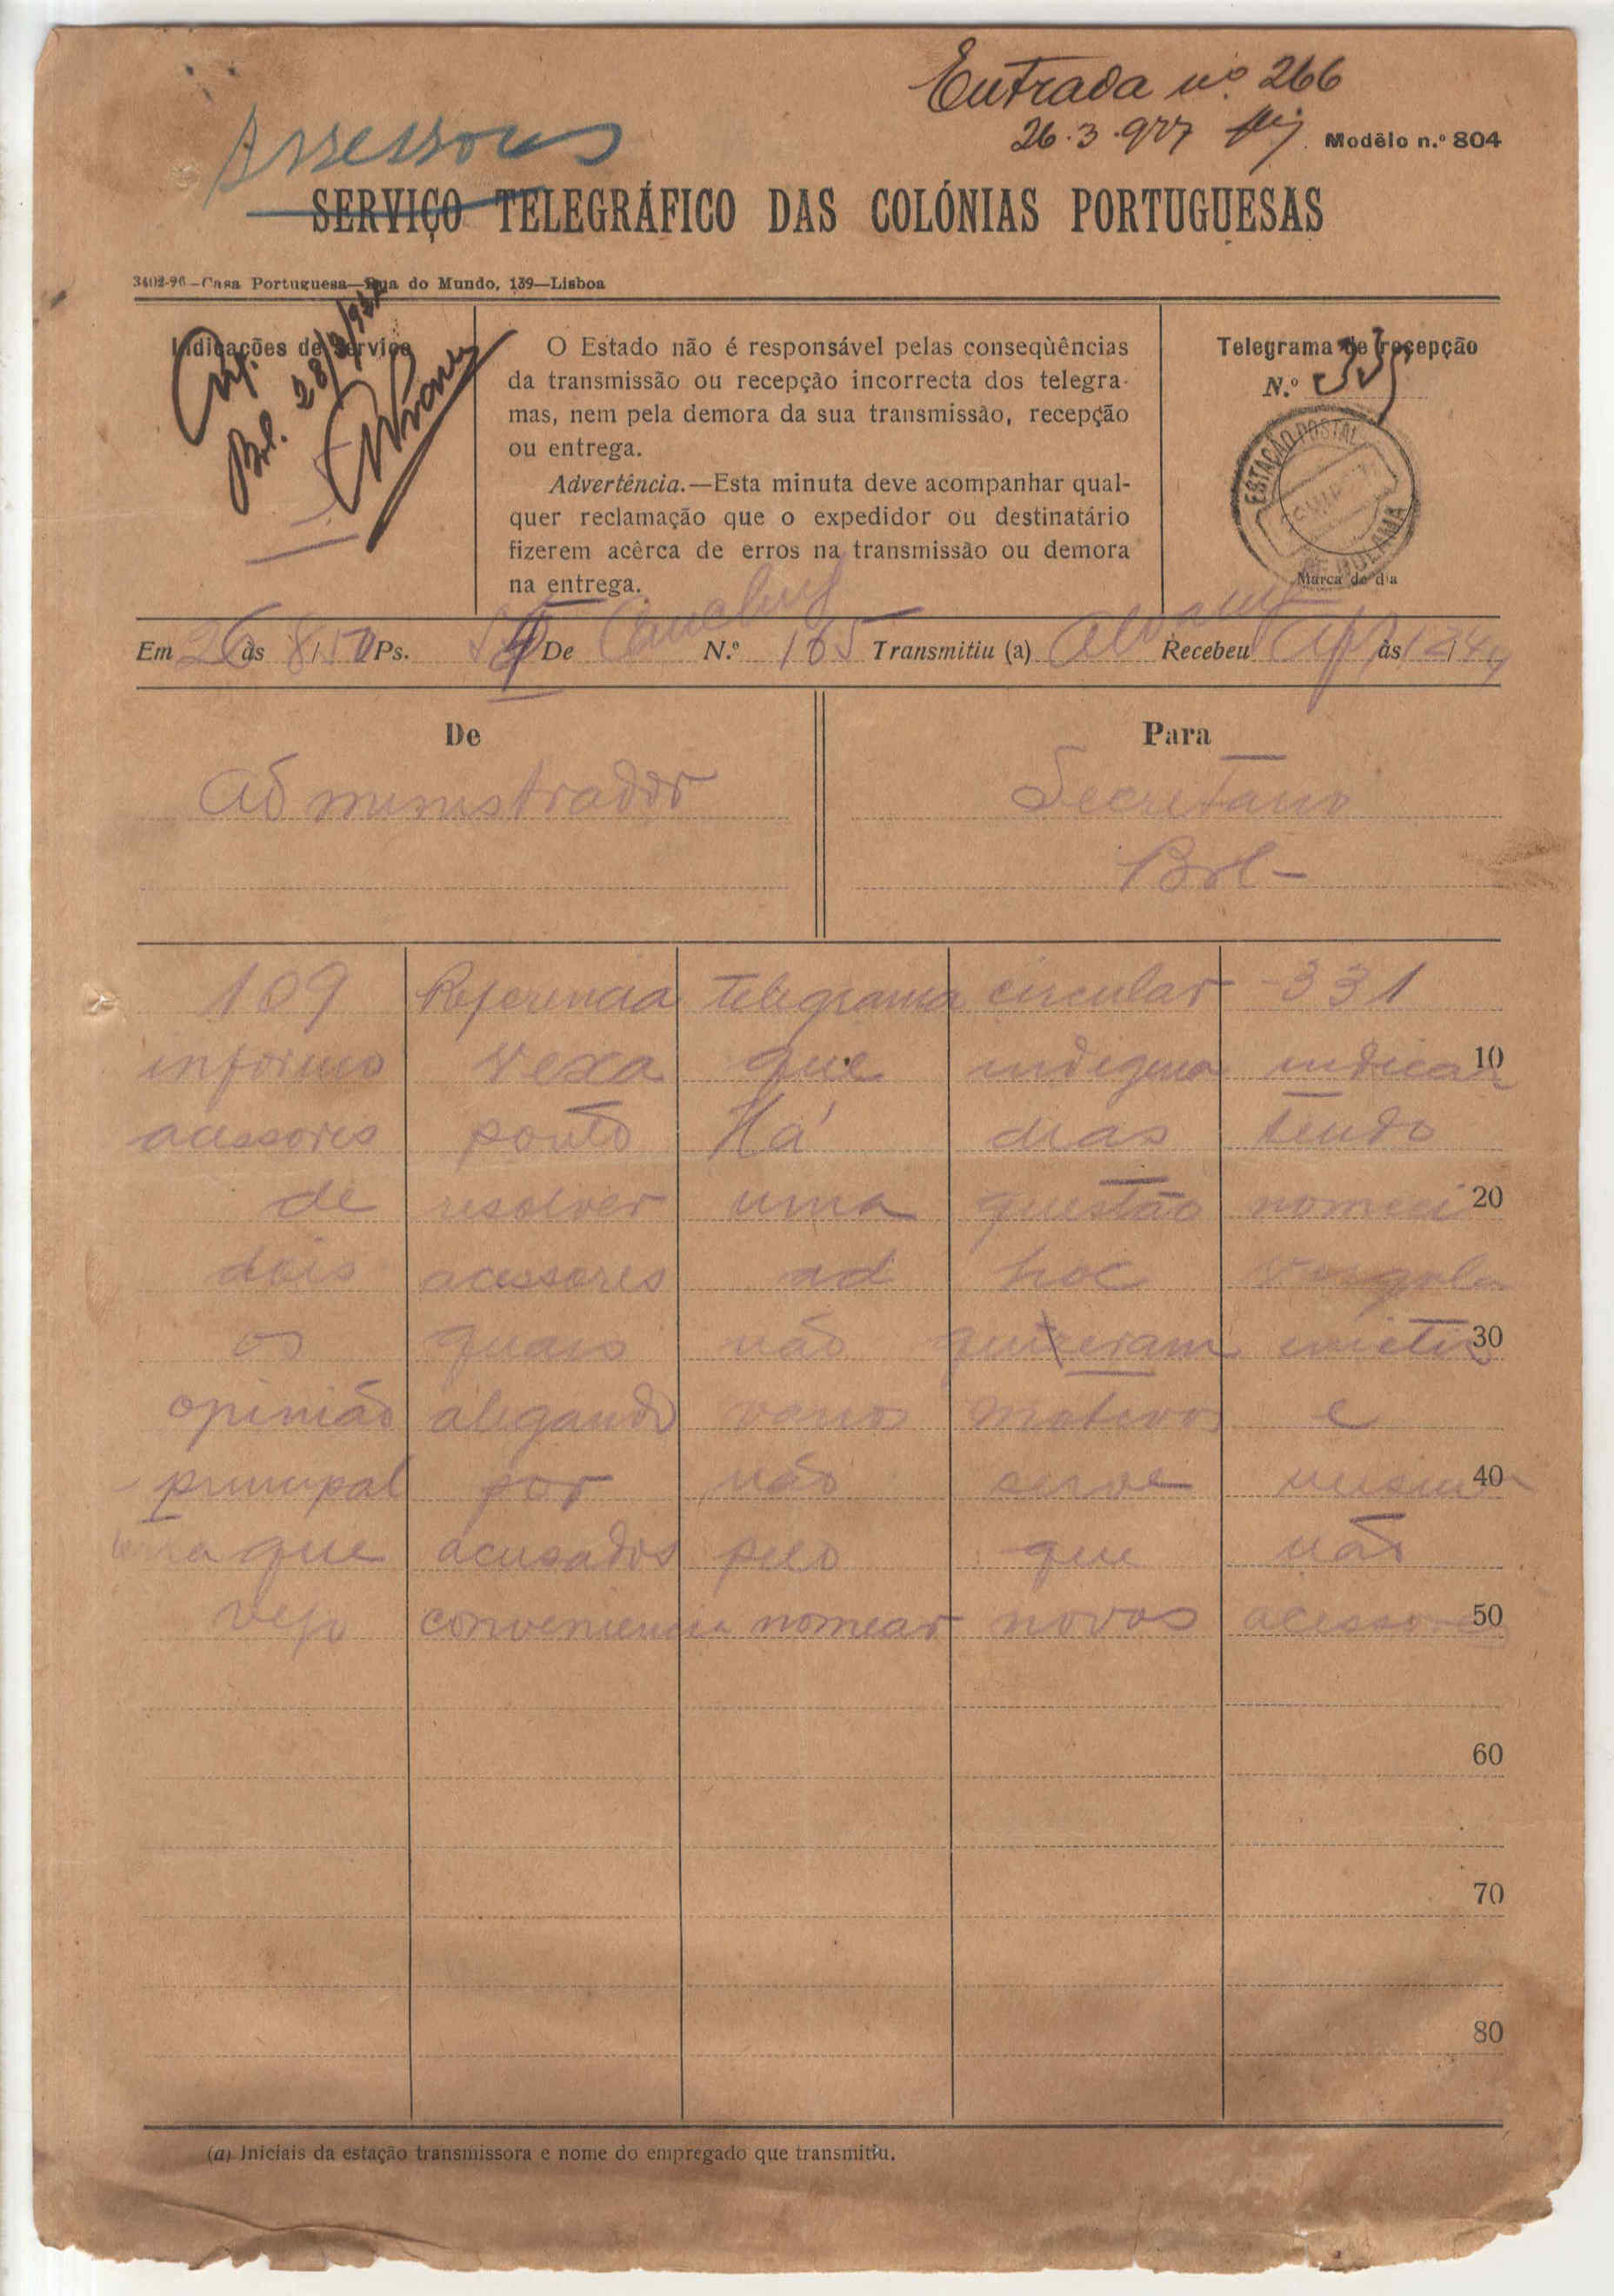 Entrada nº 266
26.3.927
Modêlo n.º 804
Assessores
SERVIÇO TELEGRÁFICO DAS COLÓNIAS PORTUGUESAS
3402-96—Casa Portuguesa—Rua do Mundo, 139—Lisboa
Indicações de serviço
Bol. 28/3/927
O Estado não é responsável pelas conseqüências
da transmissão ou recepção incorrecta dos telegra-
mas, nem pela demora da sua transmissão, recepção
ou entrega.
Advertência.—Esta minuta deve acompanhar qual-
quer reclamação que o expedidor ou destinatário
fizerem acêrca de erros na transmissão ou demora
na entrega.
Telegrama de recepção
N.º
ESTAÇÃO POSTAL
DE BOLAMA
Marca do dia
Em 26 às 8/50 Ps. De N.º 165 Transmitiu (a) Recebeu às
De
Administrador
Para
Secretario
Bol-
109 Referencia telegrama circular -331
informo Vexa que indigena indicar 10
acessores ponto Há dias tendo
de resolver uma questão nomeei 20
dois acessores ad hoc virgula
os quais não quizeram emetir 30
opinião alegando varios motivos e
principal por não serve 40
que acusados pelo que não
vejo conveniencia nomear novos acessores 50
60
70
80
(a) Iniciais da estação transmissora e nome do empregado que transmitiu.